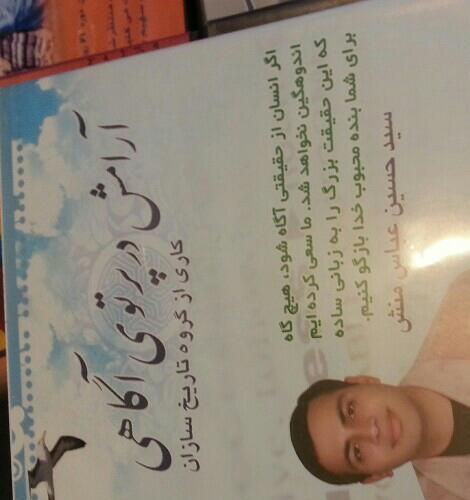 آرامش در پرتوی آگاهی
کاری از گروه تاریخ سازان
اگر انسان از حقیقتی آگاه شود، هیچ گاه
اندوهگین نخواهد شد. ما سعی کرده ایم
که این حقیقت بزرگ را به زبانی ساده
برای شما بنده محبوب خدا بازگو کنیم.
سید حسین عباس منش